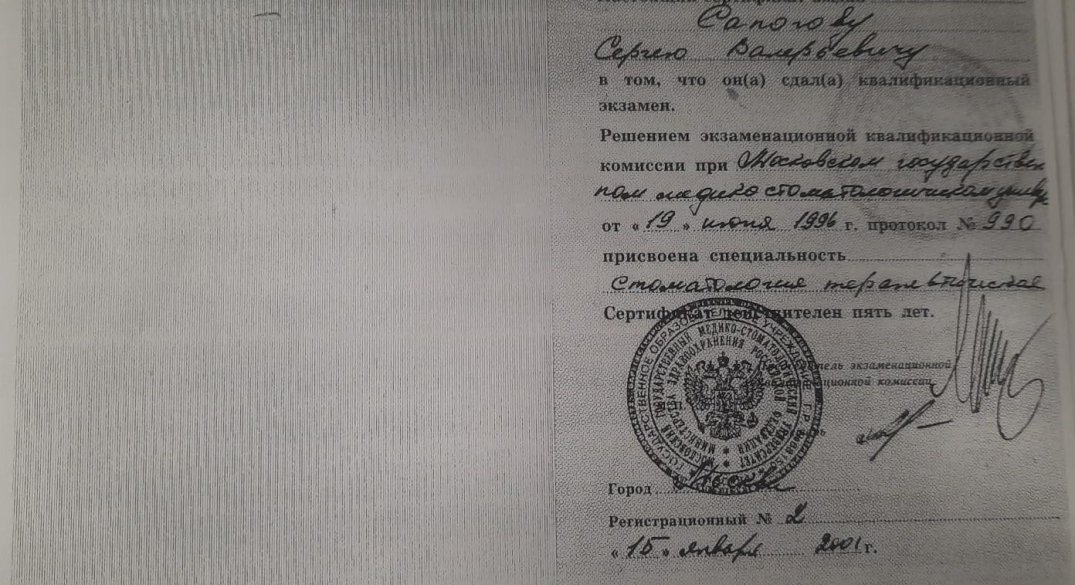 Настоящий сертификат выдан
Сапогову
Сергею Валерьевичу
в том, что он(а) сдал(а) квалификационный
экзамен.
Решением экзаменационной квалификационной
комиссии при Московском государствен
ном медико стоматологическом универ
от « 19 » июня 1996 г. протокол № 990
присвоена специальность
Стоматология терапевтическая
Сертификат действителен пять лет.
экзаменационной
комиссии
МОСКОВСКИЙ ГОСУДАРСТВЕННЫЙ МЕДИКО-СТОМАТОЛОГИЧЕСКИЙ УНИВЕРСИТЕТ
МИНИСТЕРСТВА ЗДРАВООХРАНЕНИЯ РОССИЙСКОЙ ФЕДЕРАЦИИ
Город Москва
Регистрационный № 2
« 15 » января 2001 г.